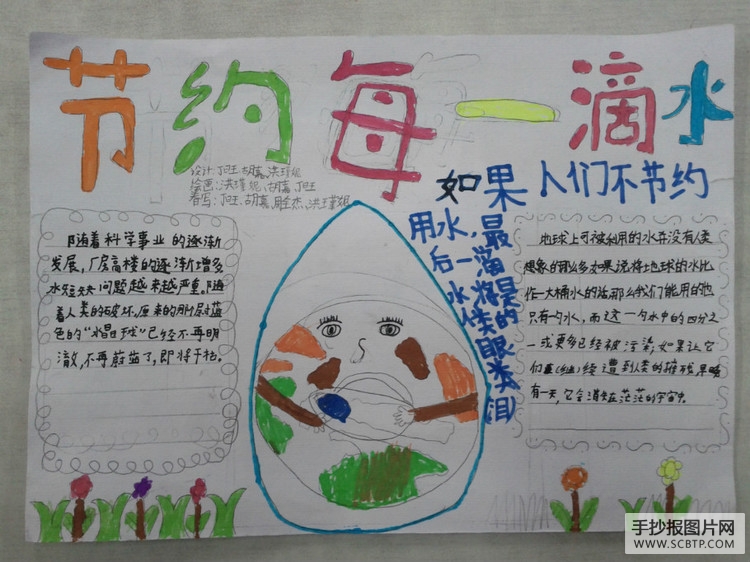 节约每一滴水
设计:
绘画:
书写:
如果人们不节约
用水,最
后一滴
水将是
人类的
眼泪
随着科学事业的逐渐
发展,厂房高楼的逐渐增多
水短缺问题越来越严重。随
着人类的破坏、原来的那层蓝
色的“水晶球”已经不再明
澈,不再蔚蓝了,即将干枯。
地球上可被利用的水并没有人类
想象的那么多如果说将地球的水比
作一大桶水的话那么我们能用的也
只有勺水,而这一勺水中的四分之
一或更多已经被污染,如果让它
们继续遭到人类的摧残,早晚
有一天,它会消失在茫茫的宇宙中。
手抄报图片网
WWW.SCBTP.COM